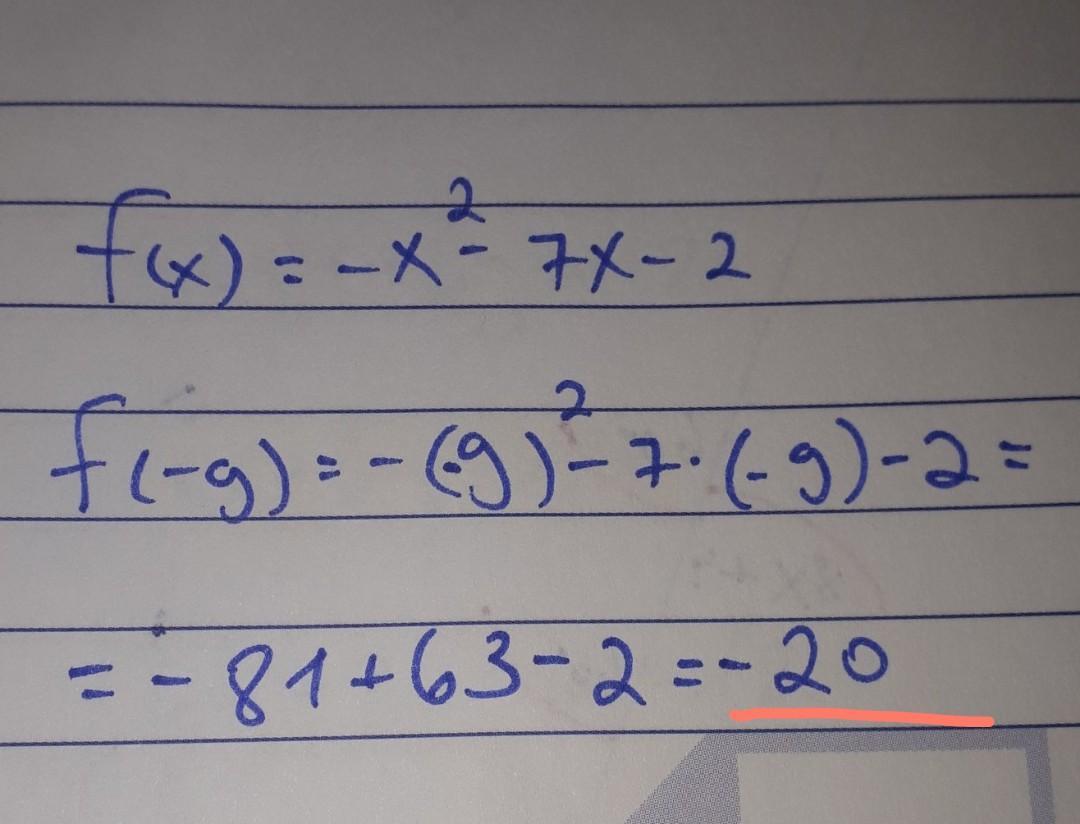 f(x) = -x² - 7x - 2
f(-9) = -(-9)² - 7·(-9) - 2 =
= -81 + 63 - 2 = -20